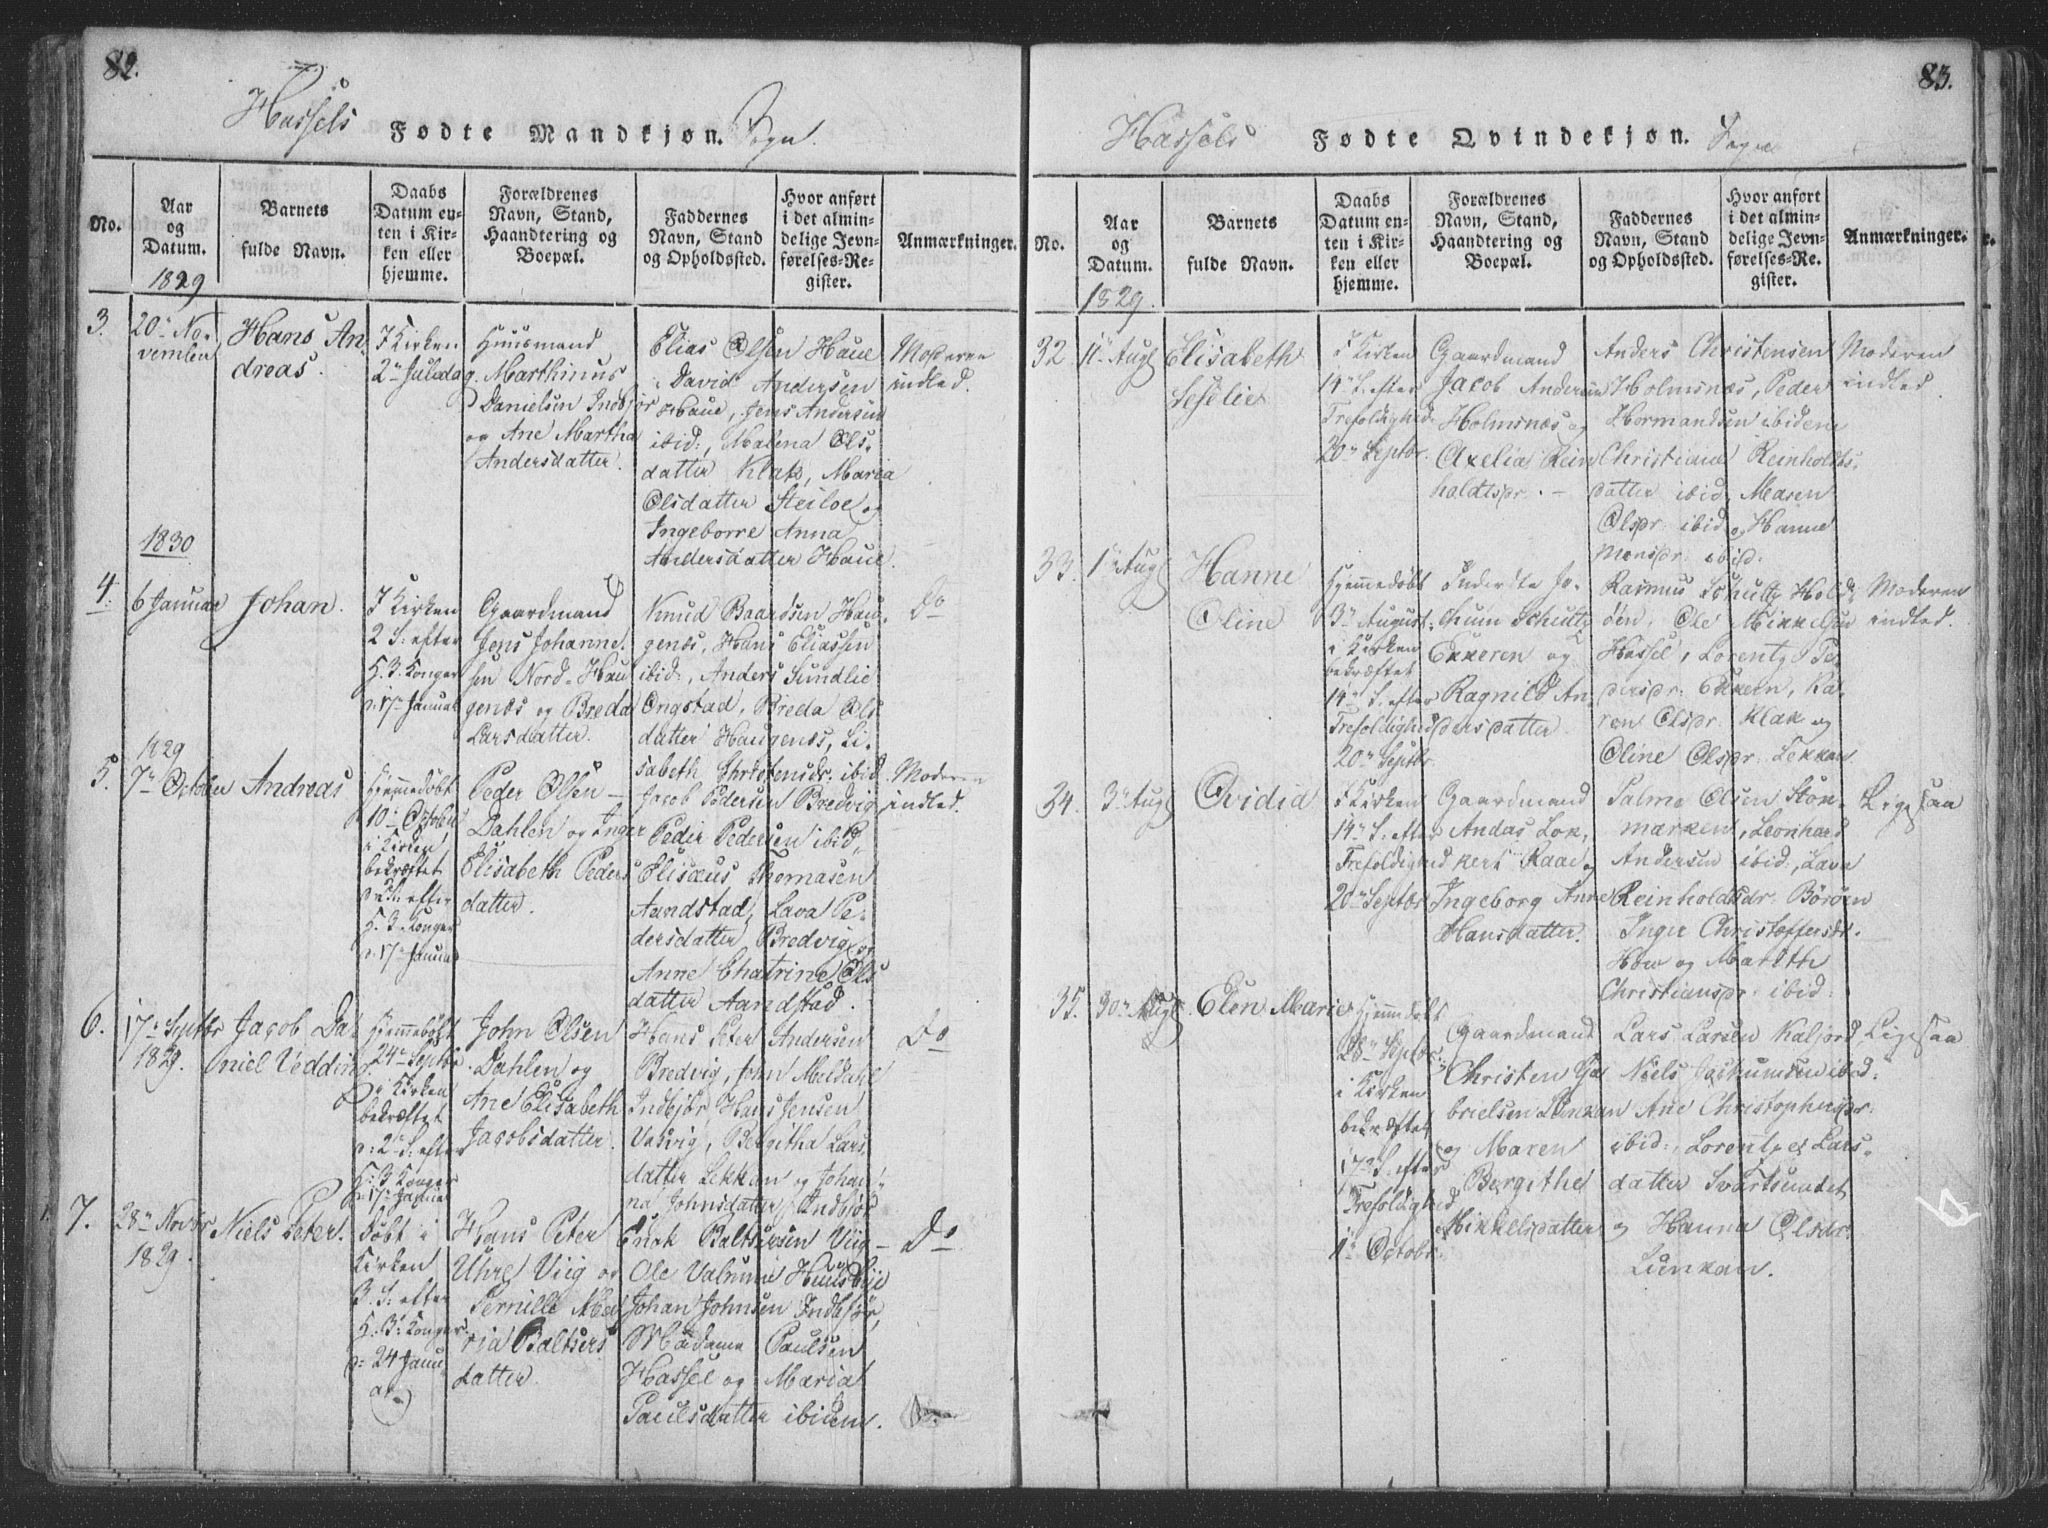 82.
Hassels Fødte Mandkjøn. Sogn.
No.
Aar
og
Datum.
Barnets
fulde Navn.
Daabs
Datum en-
ten i Kir-
ken eller
hjemme.
Forældrenes
Navn, Stand,
Haandtering og
Boepæl.
Faddernes
Navn, Stand
og Opholdssted.
Hvor anført
i det almin-
delige Jevn-
førelses-Re-
gister.
Anmærkninger.
1829
3.
20de No-
vember
Hans An-
dreas.
I Kirken
2den Juledag
Huusmand
Marthinus
Danielsen Indbjør
og Ane Martha
Andersdatter.
Elias Olsen Haue
David Andersen
Haue, Jens Andersen
ibid:, Malena Ols-
datter Klak, Maria
Olsdatter Steiloe og
Ingeborre Anna
Andersdatter Haue.
Moderen
indled.
1830
4.
6 Januar
Johan.
I Kirken
2 S: efter
H. 3 Konger
d: 17de Januar
Gaardmand
Jens Johanne-
sen Nord-Hau
genæs og Breda
Larsdatter.
Knud Baardsen Hau-
genæs, Hans Eliassen
ibid:, Anders Sundlie
Ongstad, Breda Ols
datter Haugenæs, Li-
sabeth Christensdr: ibid
Do
1829
5.
7de October
Andreas
Hjemmedøbt
10de October
i Kirken
bekræftet
2 S: efter
H. 3 Konger
d: 17de Januar
Peder Olsen
Dahlen og Inger
Elisabeth Peders
datter.
Jacob Pedersen Bredvig
Peder Pedersen ibid,
Elisæus Thomasen
Aandstad, Lava Pe-
dersdatter Bredvig og
Anne Chatrine Ols
datter Aandstad.
Moderen
indled.
6.
17de Septbr
1829.
Jacob Da-
niel Vedding
Hjemmedøbt
24de Septbr
i Kirken
bekræftet
d: 2den S: efter
H: 3 Konger
d: 17de Januar
John Olsen
Dahlen og
Ane Elisabeth
Jacobsdatter.
Hans Peter Andersen
Bredvig, John Meldahl
Indbjør Hans Jensen
Vasvig, Bergitha Lars
datter Lekkan og Johan-
na Johnsdatter Indbjør
Do
7.
28de Novbr
1829.
Niels Peter.
døbt i
Kirken
3. S: efter
H. 3: Konger
d: 24 Janu
ar
Hans Peter
Uhre Viig og
Pernille Ma
ria Baltsers
datter.
Enok Baltsersen Viig
Ole Valrume Huusbye
Johan Johnsen Indbjør,
Madame Paulsen
Hassel og Maria
Paulsdatter ibidem.
Do
83.
Hassels Fødte Qvindekjøn. Sogn
No.
Aar
og
Datum.
Barnets
fulde Navn.
Daabs
Datum en-
ten i Kir-
ken eller
hjemme.
Forældrenes
Navn, Stand,
Haandtering og
Boepæl.
Faddernes
Navn, Stand
og Opholdssted.
Hvor anført
i det almin-
delige Jevn-
førelses-Re-
gister.
Anmærkninger.
1829.
32
11te Augs
Elisabeth
Seselie
I Kirken
14de S. efter
Trefoldighed
20de Septbr.
Gaardmand
Jacob Andersen
Holmsnæs og
Axelia Rein
holdtspr. -
Anders Christensen
Holmsnæs, Peder
Hormandsen ibidem
Christiane Reinholdts-
datter ibid, Maren
Olspr: ibid og Hanne
Monspr: ibid.
Moderen
indled
33.
1ste Augs
Hanne
Oline
Hjemmedøbt
3de August
i Kirken
bekræftet
14de S. efter
Trefoldighed
20de Septbr.
Inderste Jo-
chum Schultz
Ekkeren og
Ragnild An-
dersdatter.
Rasmus Schultz Hold-
øen, Ole Mikkelsen
Hassel, Lorentz Pe-
derspr: Ekkern, Ka-
ren Olspr. Klak og
Oline Olspr: Lekkan
Moderen
indled.
34.
3de Augs
Ovidia
I Kirken
14de S. efter
Trefoldighed
20de Septbr
Gaardmand
Andas Lok,
kert Kaae
Ingeborg Anne
Hansdatter.
Salmo Olsen Stok-
marken, Leonhard
Andersen ibid., Lava
Reinholdtsdr. Børøen
Inger Christoffersdr.
How og Mareth
Christianspr: ibid:
Ligesaa
35.
30de Augs
Elen Marie
Hjemmedøbt
28de Septbr.
i Kirken
bekræftet
17de S. efter
Trefoldighed
4de Octobr.
Gaardmand
Christen Ga
brielsen Lunkan
og Maren
Bergithe
Mikkelsdatter
Lars Larsen Kaljord
Niels Jochumsen ibid.
Ane Christophenspr.
ibid:, Lorentze Lars-
datter Svartsundet
og Hanna Olsdr
Lunkan.
Ligesaa